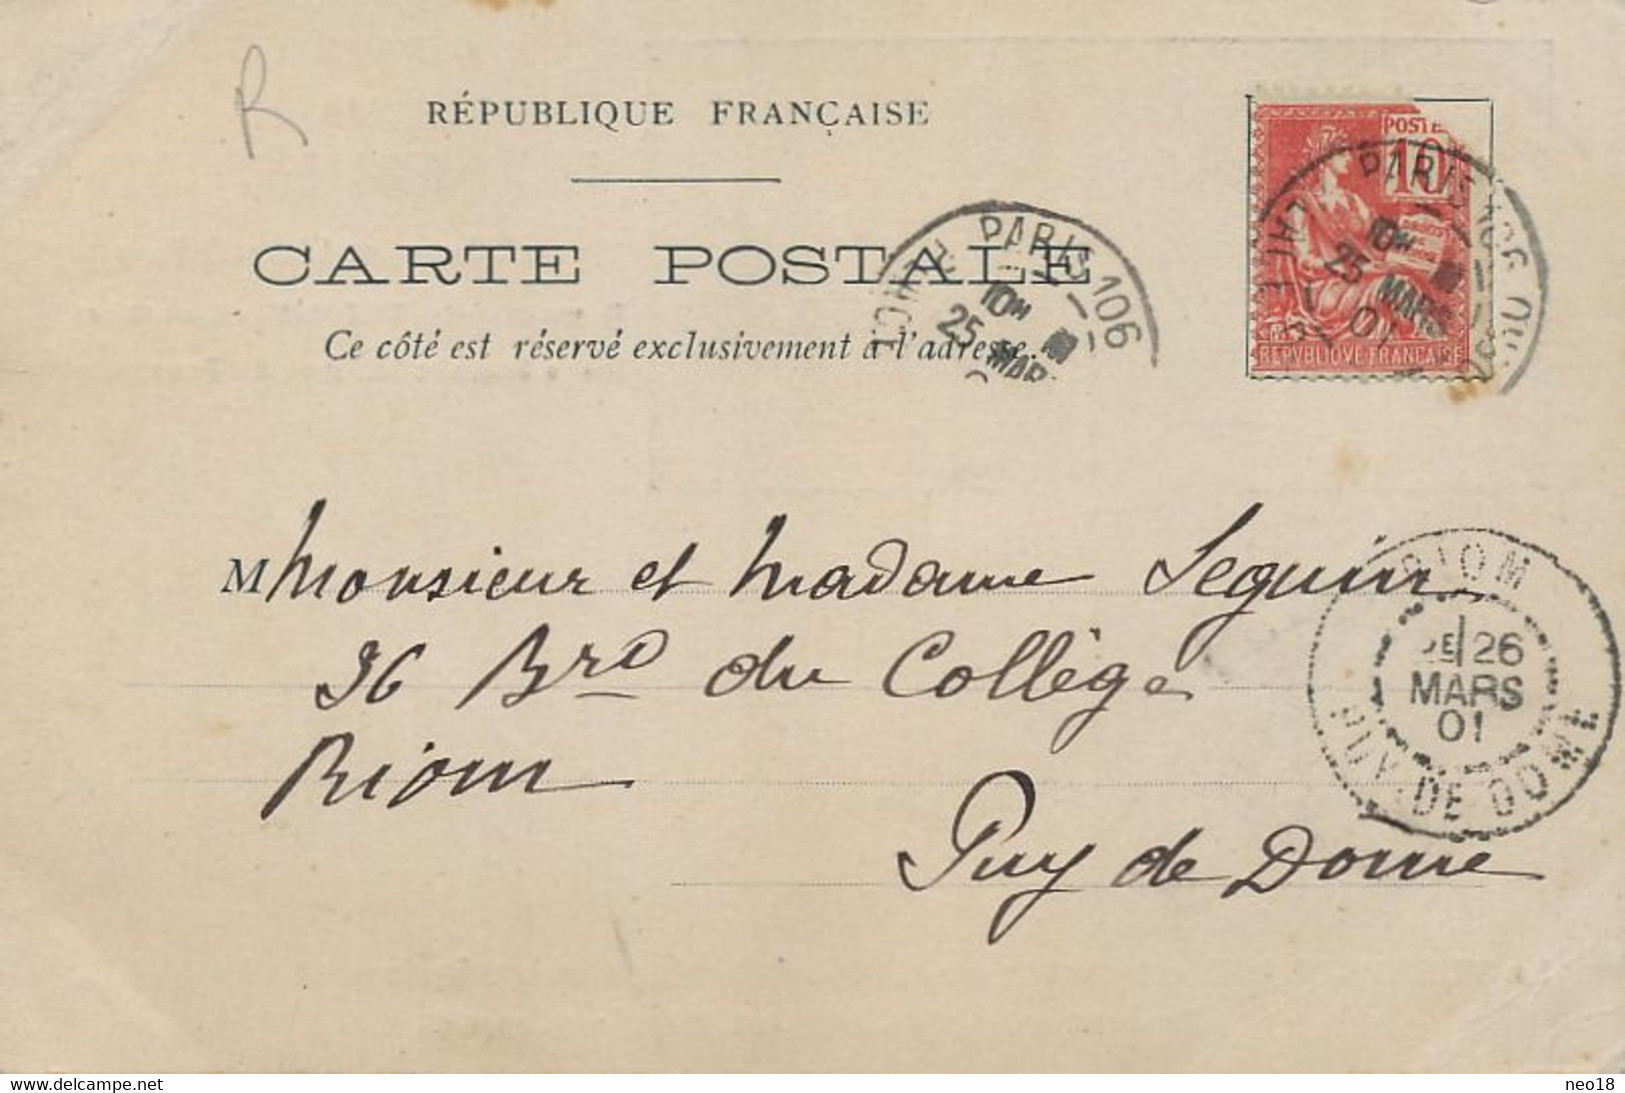 R
RÉPUBLIQUE FRANÇAISE
CARTE POSTALE
Ce côté est réservé exclusivement à l'adresse.
PARIS 106
10M
25 MARS
POSTE
10
REPVBLIQVE FRANÇAISE
PARIS 106
10M
25 MARS
01
M Monsieur et Madame Seguin
36 Brd du Collège
Riom
Puy de Dome
RIOM
2E 26
MARS
01
PUY DE DOME
www.delcampe.net
neo18